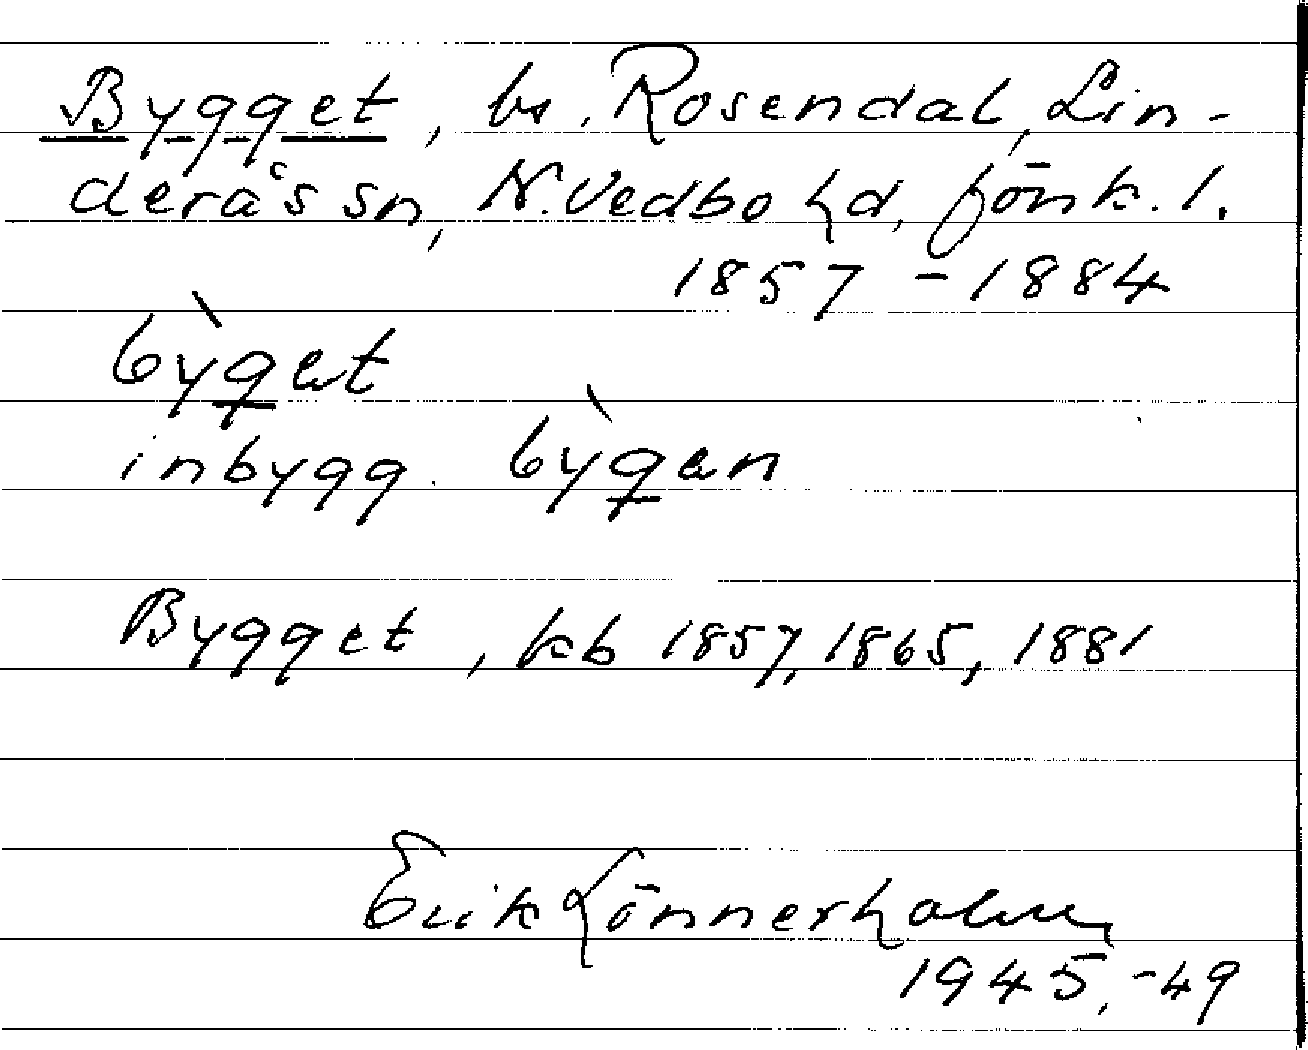 Bygget, bs. Rosendal, Lin-
deråss sn, N. Vedbo hd, Jönk. l.
1857 - 1884
bỳg̠et
inbygg. bỳg̠en
Bygget, kb 1857, 1865, 1881
Erik Lönnerholm
1945, -49